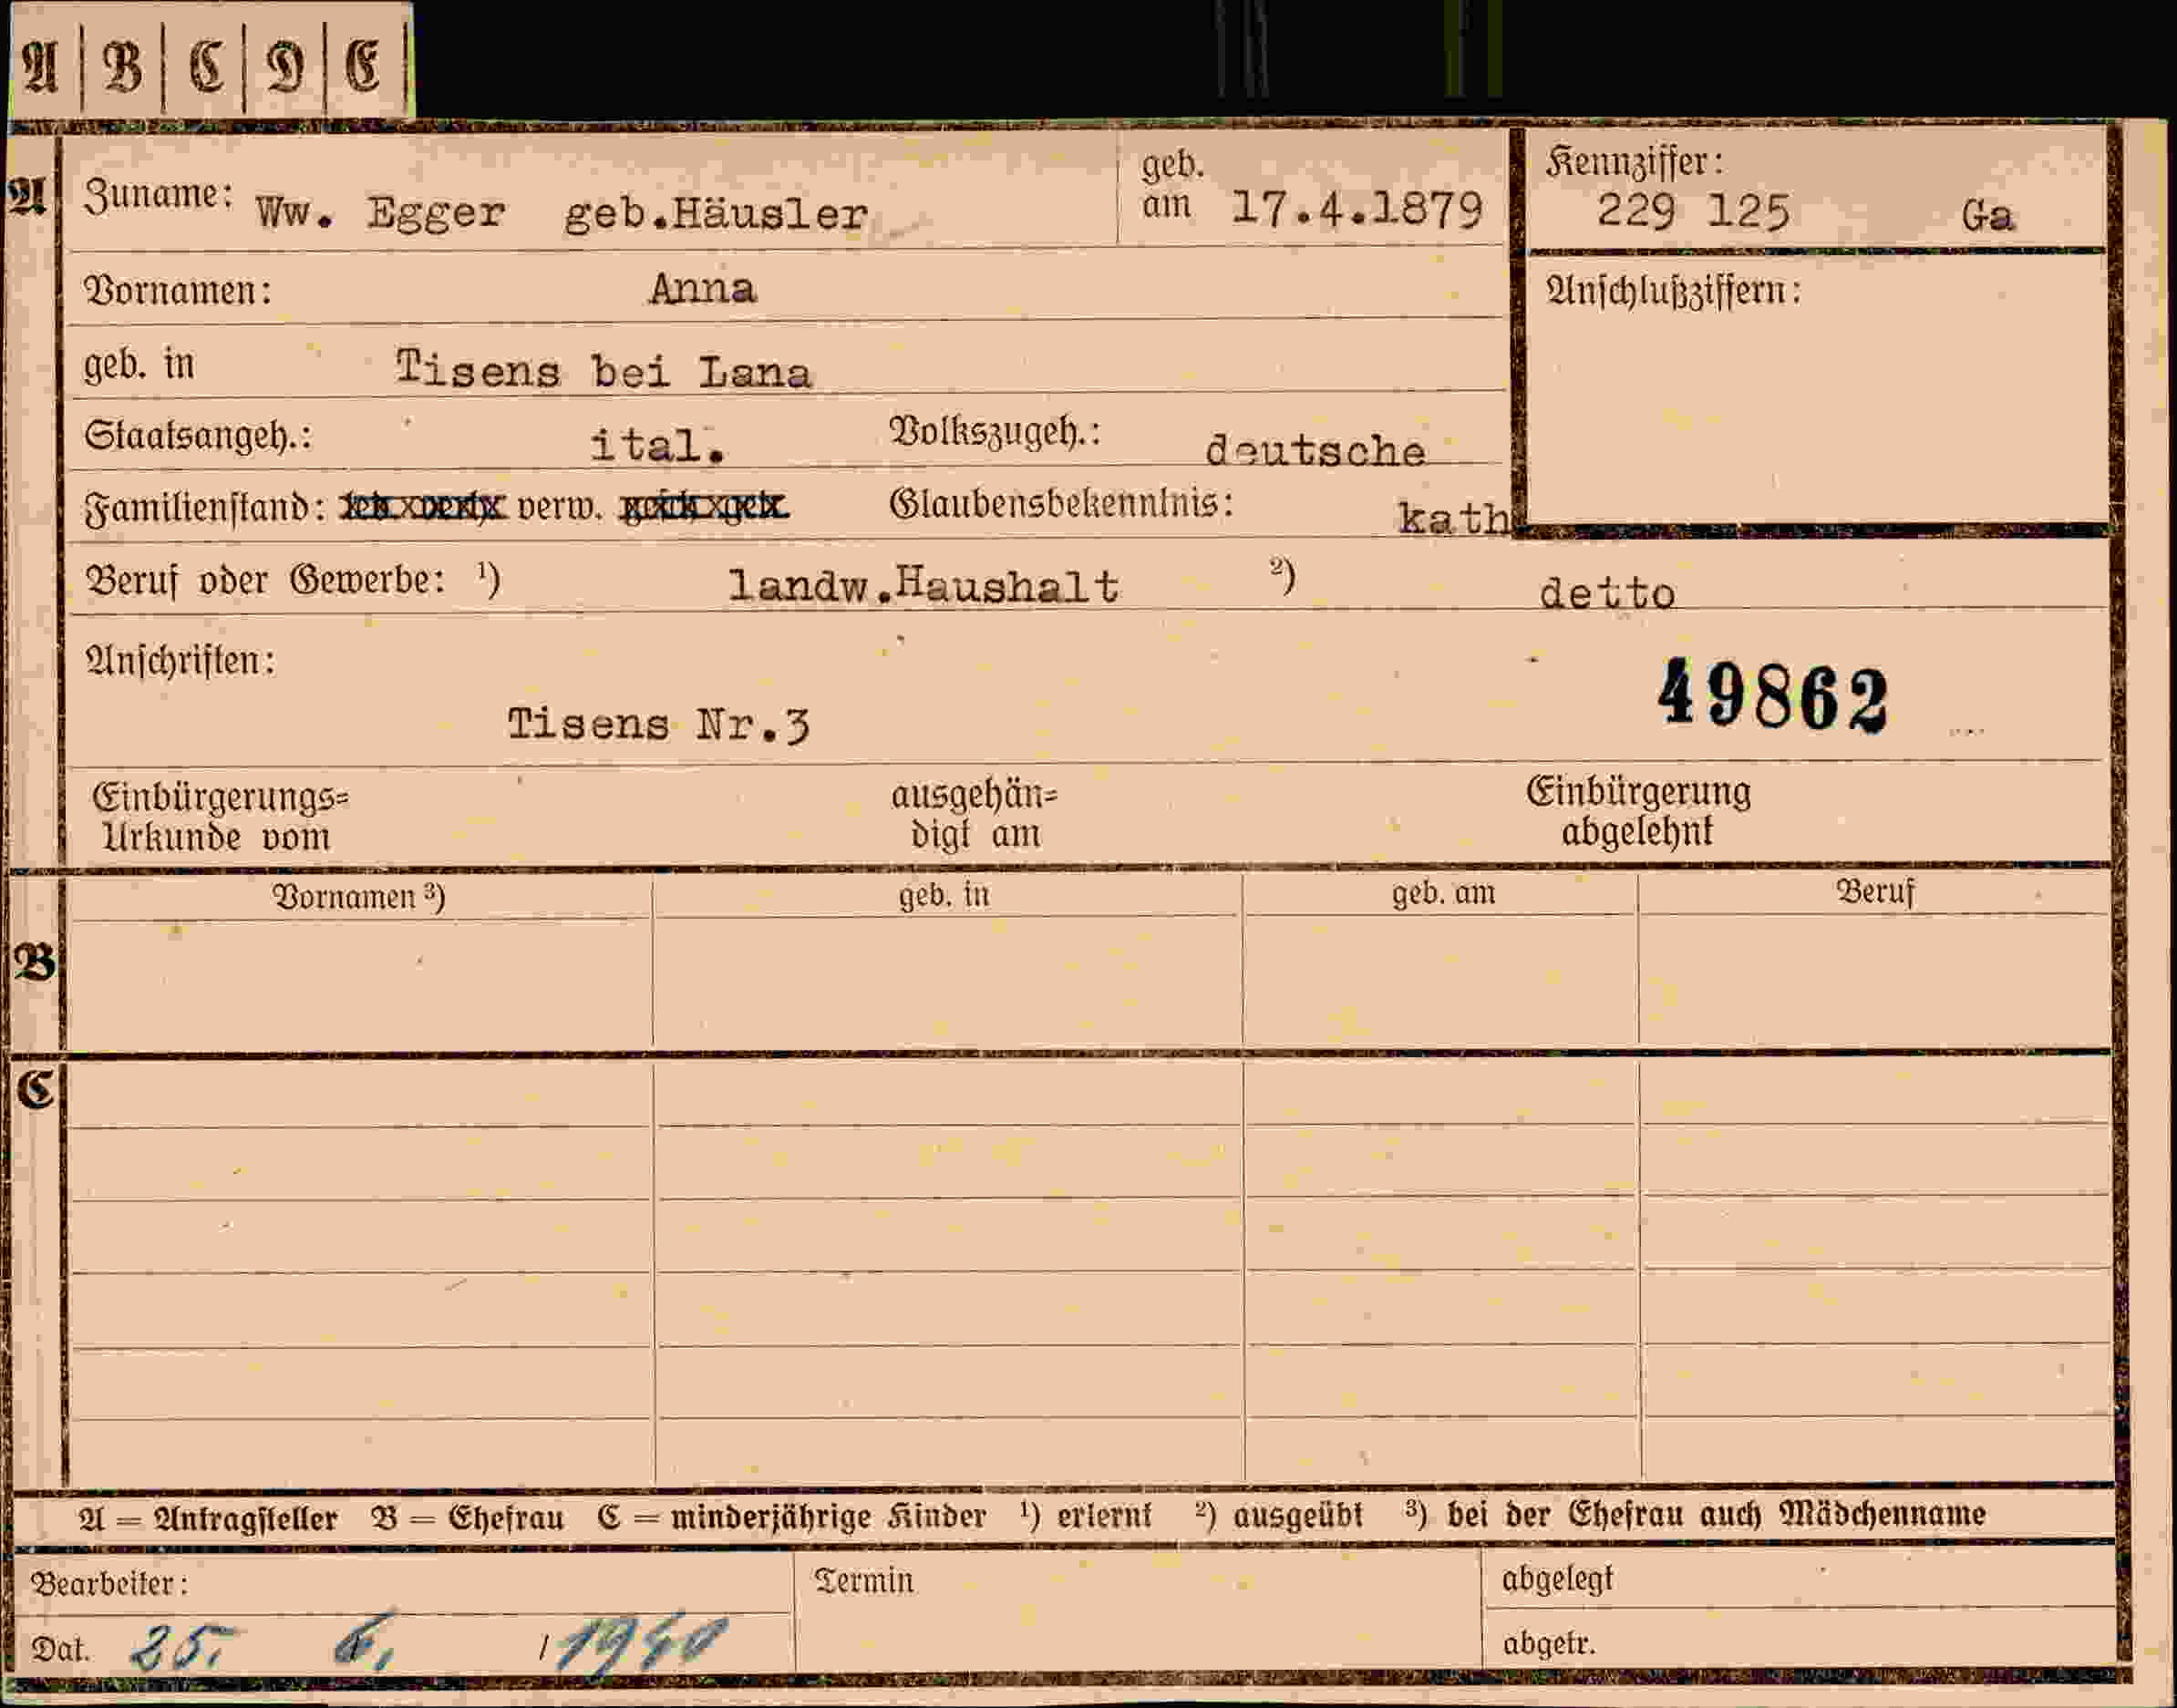 A | B | C | D | E |
A
Zuname: Ww. Egger geb.Häusler
geb. am 17.4.1879
Kennziffer: 229 125 Ga
Vornamen: Anna
Anschlußziffern:
geb. in Tisens bei Lana
Staatsangeh.: ital. Volkszugeh.: deutsche
Familienstand: led. verh. verw. gesch. get. Glaubensbekenntnis: kath
Beruf oder Gewerbe: ¹) landw.Haushalt ²) detto
Anschriften:
49862
Tisens Nr.3
Einbürgerungs=
Urkunde vom
ausgehän=
digt am
Einbürgerung
abgelehnt
Vornamen ³) geb. in geb. am Beruf
B
C
A = Antragsteller B = Ehefrau C = minderjährige Kinder ¹) erlernt ²) ausgeübt ³) bei der Ehefrau auch Mädchenname
Bearbeiter: Termin abgelegt
Dat. 25. 6. / 1940 abgetr.